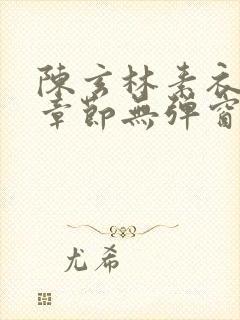 陳玄林素衣
章節無彈窗
尤希